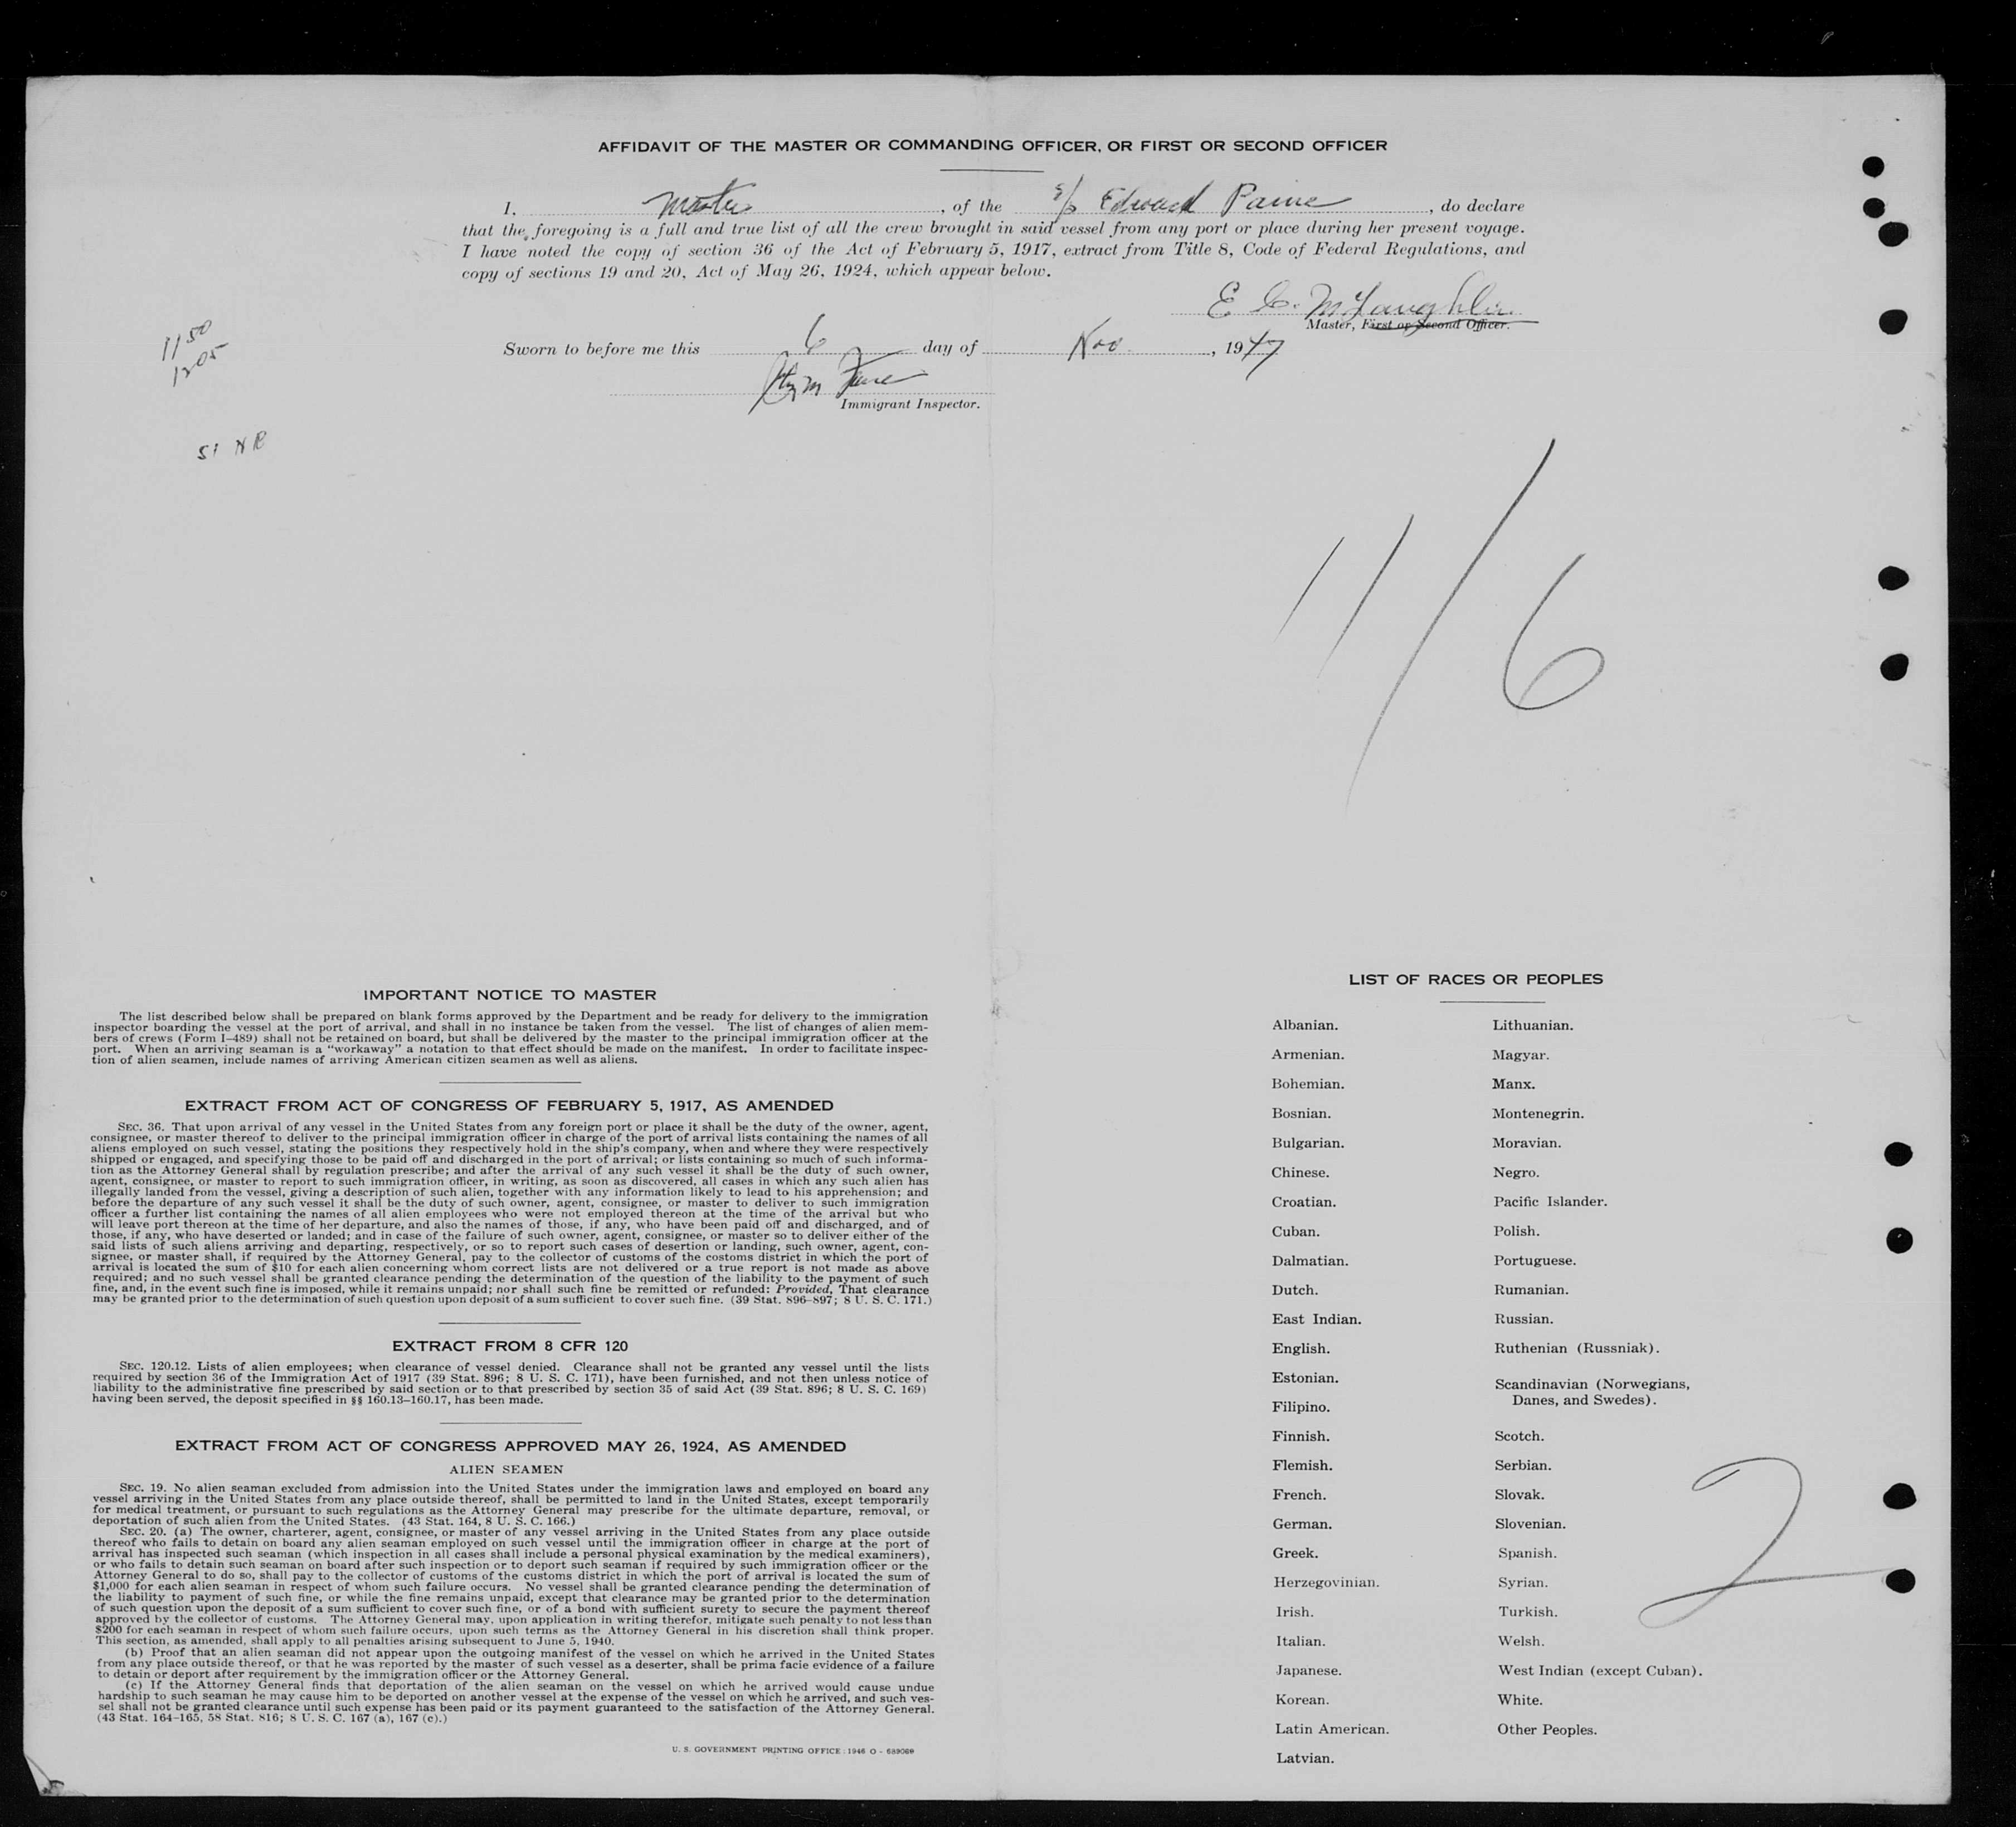 AFFIDAVIT OF THE MASTER OR COMMANDING OFFICER, OR FIRST OR SECOND OFFICER
I, Master, of the S/S Edward Paine, do declare
that the foregoing is a full and true list of all the crew brought in said vessel from any port or place during her present voyage.
I have noted the copy of section 36 of the Act of February 5, 1917, extract from Title 8, Code of Federal Regulations, and
copy of sections 19 and 20, Act of May 26, 1924, which appear below.
E C. McLaughlin
Master, First or Second Officer.
1150
1205
Sworn to before me this 6 day of Nov., 1947
Immigrant Inspector.
51 NR
11/6
IMPORTANT NOTICE TO MASTER
The list described below shall be prepared on blank forms approved by the Department and be ready for delivery to the immigration
inspector boarding the vessel at the port of arrival, and shall in no instance be taken from the vessel. The list of changes of alien mem-
bers of crews (Form I–489) shall not be retained on board, but shall be delivered by the master to the principal immigration officer at the
port. When an arriving seaman is a "workaway" a notation to that effect should be made on the manifest. In order to facilitate inspec-
tion of alien seamen, include names of arriving American citizen seamen as well as aliens.
EXTRACT FROM ACT OF CONGRESS OF FEBRUARY 5, 1917, AS AMENDED
SEC. 36. That upon arrival of any vessel in the United States from any foreign port or place it shall be the duty of the owner, agent,
consignee, or master thereof to deliver to the principal immigration officer in charge of the port of arrival lists containing the names of all
aliens employed on such vessel, stating the positions they respectively hold in the ship's company, when and where they were respectively
shipped or engaged, and specifying those to be paid off and discharged in the port of arrival; or lists containing so much of such informa-
tion as the Attorney General shall by regulation prescribe; and after the arrival of any such vessel it shall be the duty of such owner,
agent, consignee, or master to report to such immigration officer, in writing, as soon as discovered, all cases in which any such alien has
illegally landed from the vessel, giving a description of such alien, together with any information likely to lead to his apprehension; and
before the departure of any such vessel it shall be the duty of such owner, agent, consignee, or master to deliver to such immigration
officer a further list containing the names of all alien employees who were not employed thereon at the time of the arrival but who
will leave port thereon at the time of her departure, and also the names of those, if any, who have been paid off and discharged, and of
those, if any, who have deserted or landed; and in case of the failure of such owner, agent, consignee, or master so to deliver either of the
said lists of such aliens arriving and departing, respectively, or so to report such cases of desertion or landing, such owner, agent, con-
signee, or master shall, if required by the Attorney General, pay to the collector of customs of the costoms district in which the port of
arrival is located the sum of $10 for each alien concerning whom correct lists are not delivered or a true report is not made as above
required; and no such vessel shall be granted clearance pending the determination of the question of the liability to the payment of such
fine, and, in the event such fine is imposed, while it remains unpaid; nor shall such fine be remitted or refunded: Provided, That clearance
may be granted prior to the determination of such question upon deposit of a sum sufficient to cover such fine. (39 Stat. 896–897; 8 U. S. C. 171.)
EXTRACT FROM 8 CFR 120
SEC. 120.12. Lists of alien employees; when clearance of vessel denied. Clearance shall not be granted any vessel until the lists
required by section 36 of the Immigration Act of 1917 (39 Stat. 896; 8 U. S. C. 171), have been furnished, and not then unless notice of
liability to the administrative fine prescribed by said section or to that prescribed by section 35 of said Act (39 Stat. 896; 8 U. S. C. 169)
having been served, the deposit specified in §§ 160.13–160.17, has been made.
EXTRACT FROM ACT OF CONGRESS APPROVED MAY 26, 1924, AS AMENDED
ALIEN SEAMEN
SEC. 19. No alien seaman excluded from admission into the United States under the immigration laws and employed on board any
vessel arriving in the United States from any place outside thereof, shall be permitted to land in the United States, except temporarily
for medical treatment, or pursuant to such regulations as the Attorney General may prescribe for the ultimate departure, removal, or
deportation of such alien from the United States. (43 Stat. 164, 8 U. S. C. 166.)
SEC. 20. (a) The owner, charterer, agent, consignee, or master of any vessel arriving in the United States from any place outside
thereof who fails to detain on board any alien seaman employed on such vessel until the immigration officer in charge at the port of
arrival has inspected such seaman (which inspection in all cases shall include a personal physical examination by the medical examiners),
or who fails to detain such seaman on board after such inspection or to deport such seaman if required by such immigration officer or the
Attorney General to do so, shall pay to the collector of customs of the customs district in which the port of arrival is located the sum of
$1,000 for each alien seaman in respect of whom such failure occurs. No vessel shall be granted clearance pending the determination of
the liability to payment of such fine, or while the fine remains unpaid, except that clearance may be granted prior to the determination
of such question upon the deposit of a sum sufficient to cover such fine, or of a bond with sufficient surety to secure the payment thereof
approved by the collector of customs. The Attorney General may, upon application in writing therefor, mitigate such penalty to not less than
$200 for each seaman in respect of whom such failure occurs, upon such terms as the Attorney General in his discretion shall think proper.
This section, as amended, shall apply to all penalties arising subsequent to June 5, 1940.
(b) Proof that an alien seaman did not appear upon the outgoing manifest of the vessel on which he arrived in the United States
from any place outside thereof, or that he was reported by the master of such vessel as a deserter, shall be prima facie evidence of a failure
to detain or deport after requirement by the immigration officer or the Attorney General.
(c) If the Attorney General finds that deportation of the alien seaman on the vessel on which he arrived would cause undue
hardship to such seaman he may cause him to be deported on another vessel at the expense of the vessel on which he arrived, and such ves-
sel shall not be granted clearance until such expense has been paid or its payment guaranteed to the satisfaction of the Attorney General.
(43 Stat. 164–165, 58 Stat. 816; 8 U. S. C. 167 (a), 167 (c).)
U. S. GOVERNMENT PRINTING OFFICE : 1946 O - 689068
LIST OF RACES OR PEOPLES
Albanian.
Armenian.
Bohemian.
Bosnian.
Bulgarian.
Chinese.
Croatian.
Cuban.
Dalmatian.
Dutch.
East Indian.
English.
Estonian.
Filipino.
Finnish.
Flemish.
French.
German.
Greek.
Herzegovinian.
Irish.
Italian.
Japanese.
Korean.
Latin American.
Latvian.
Lithuanian.
Magyar.
Manx.
Montenegrin.
Moravian.
Negro.
Pacific Islander.
Polish.
Portuguese.
Rumanian.
Russian.
Ruthenian (Russniak).
Scandinavian (Norwegians,
Danes, and Swedes).
Scotch.
Serbian.
Slovak.
Slovenian.
Spanish.
Syrian.
Turkish.
Welsh.
West Indian (except Cuban).
White.
Other Peoples.
2